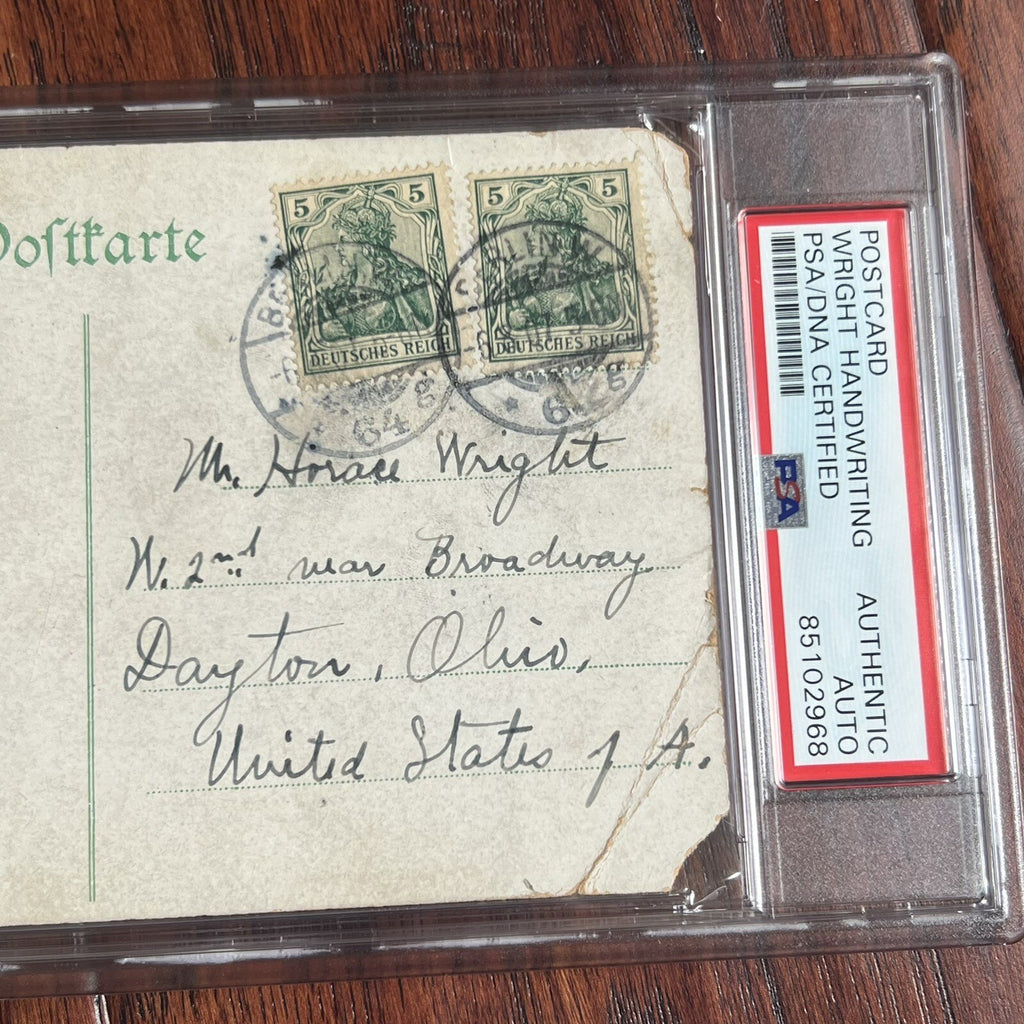 Postkarte
5 5
DEUTSCHES REICH
5 5
DEUTSCHES REICH
64 g
Mr. Horace Wright
W. 2nd near Broadway
Dayton, Ohio,
United States of A.
POSTCARD
WRIGHT HANDWRITING AUTHENTIC
PSA/DNA CERTIFIED AUTO
85102968
PSA